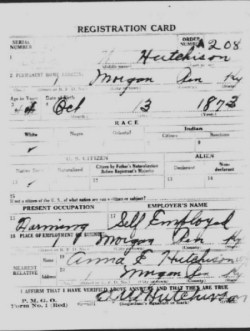 REGISTRATION CARD
SERIAL NUMBER
ORDER NUMBER A 208
1 Hutchison
2 PERMANENT HOME ADDRESS
Morgan Pen Ky
Age in Years
44 Oct 13 1873
RACE
White Negro Oriental Indian
Citizen Noncitizen
U. S. CITIZEN ALIEN
Native Born Naturalized Citizen by Father's Naturalization Before Registrant's Majority Declarant Non-declarant
If not a citizen of the U. S., of what nation are you a citizen or subject?
PRESENT OCCUPATION EMPLOYER'S NAME
Farming Self Employed
18 PLACE OF EMPLOYMENT OR BUSINESS
Morgan Pen Ky
NEAREST RELATIVE
Name Anna E Hutchison
Address Morgan Pen Ky
I AFFIRM THAT I HAVE VERIFIED ABOVE ANSWERS AND THAT THEY ARE TRUE
P. M. G. O.
Form No. 1 (Red)
Hutchison